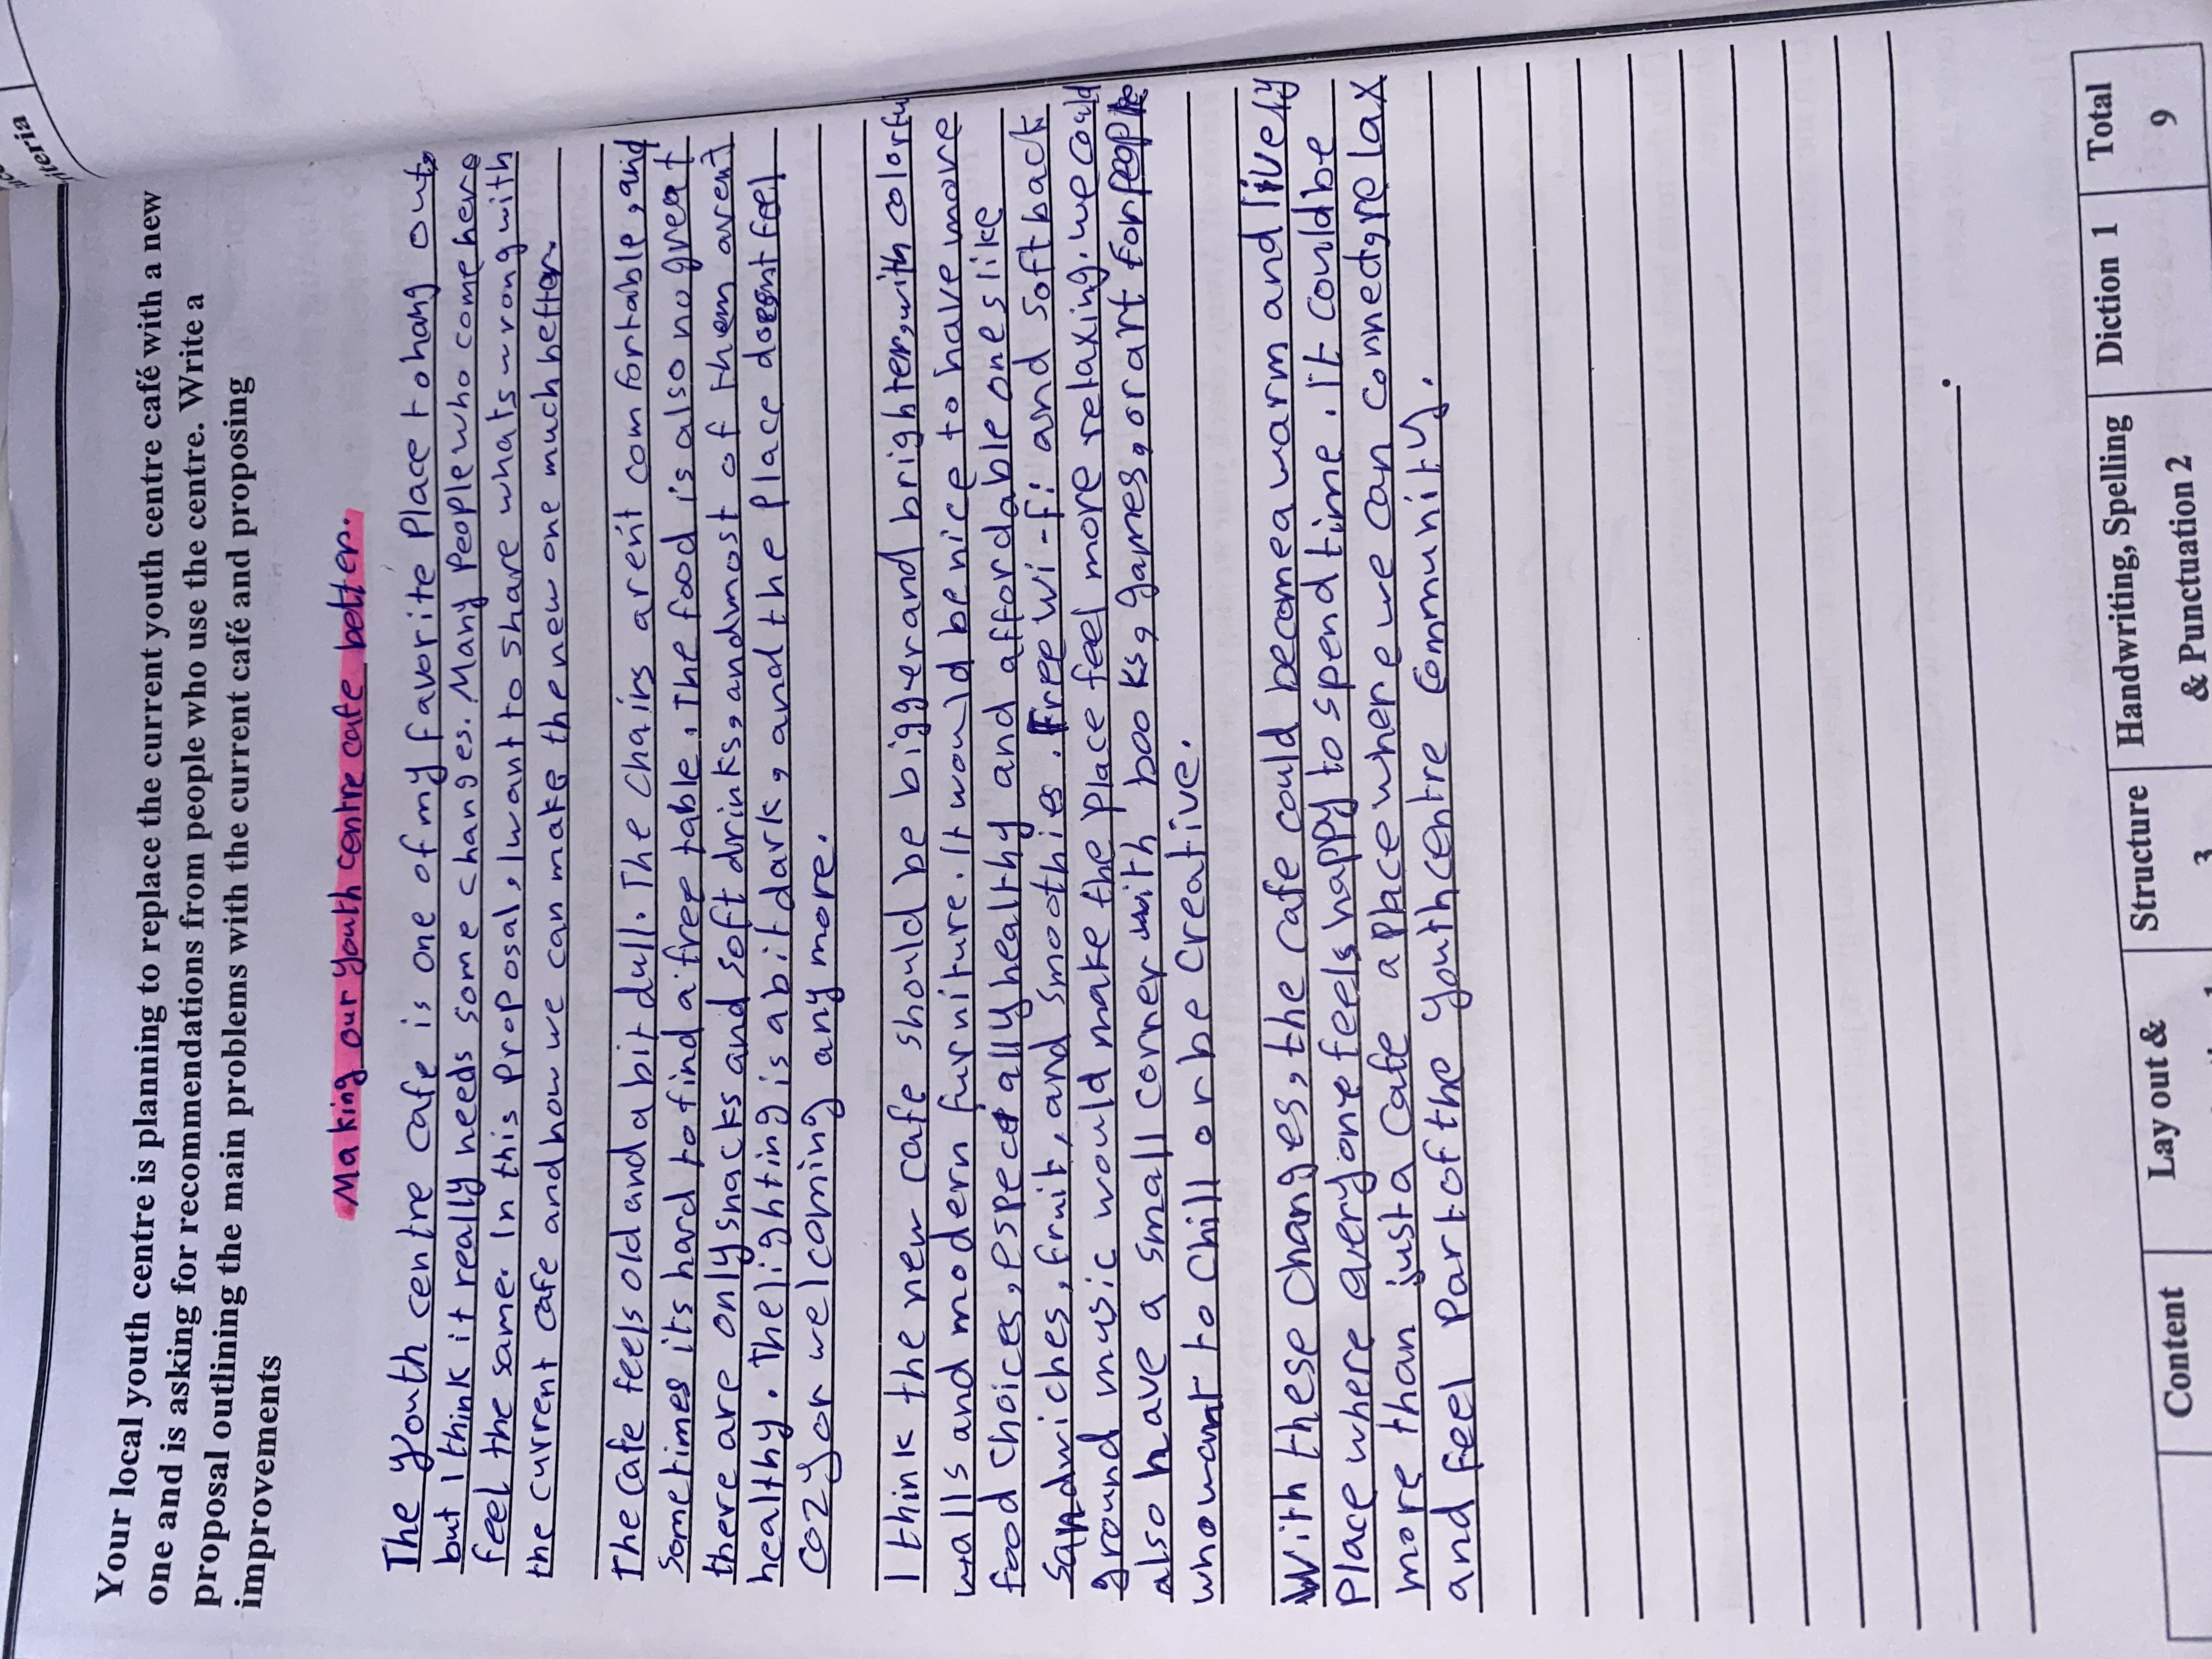 iteria
Your local youth centre is planning to replace the current youth centre café with a new
one and is asking for recommendations from people who use the centre. Write a
proposal outlining the main problems with the current café and proposing
improvements
Making our youth centre cafe better.
The Youth centre cafe is one of my favorite Place to hang out,
but I think it really needs some changes. Many People who come here
feel the same. In this proposal, I want to share whats wrong with
the current cafe and how we can make the new one much better.
The cafe feels old and a bit dull. The chairs arent comfortable, and
sometimes its hard to find a free table. The food is also no great
there are only snacks and soft drinks, and most of them arent
healthy. The lighting is a bit dark, and the place doesnt feel
cozy or welcoming any more.
I think the new cafe should be bigger and brighter, with colorfu
walls and modern furniture. It would be nice to have more
food choices, especially healthy and affordable ones like
Sandwiches, fruit, and smoothies. Free wi-fi and soft back
ground music would make the place feel more relaxing. we could
also have a small corner with books, games, or art for people
who want to chill or be creative.
With these changes, the cafe could become a warm and lively
Place where averyone feels happy to spend time. It could be
more than just a cafe a place where we can connect, relax
and feel Part of the Youth centre Community.
Content
Lay out &
Structure
Handwriting, Spelling
& Punctuation 2
Diction 1
Total
9
3